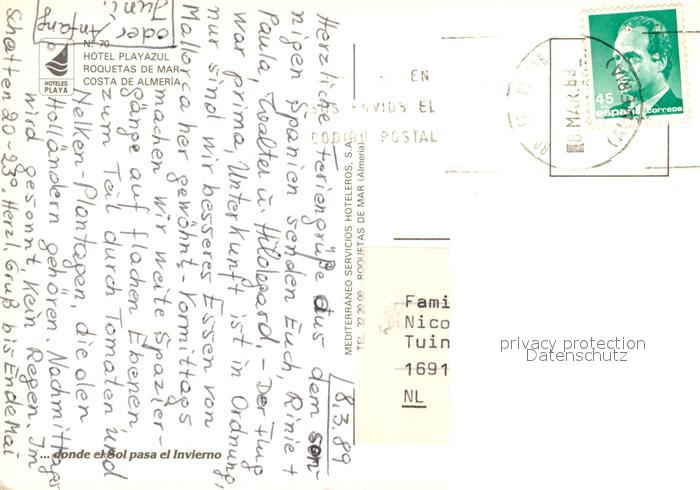 8.3.89
Herzliche Feriengrüße aus dem son-
nigen Spanien senden Euch, Rinie +
Paula, Walter u. Hildegard, – Der Flug
war prima, Unterkunft ist in Ordnung,
nur sind wir besseres Essen von
Mallorca her gewöhnt. – Vormittags
machen wir weite Spazier-
gänge auf flachen Ebenen,
zum Teil durch Tomaten und
Nelken-Plantagen, die den
Holländern gehören. Nachmittags
wird gesonnt. Kein Regen. Im
Schatten 20-23°. Herzl. Gruß bis Ende Mai
oder Anfang
Juni.
N.º 70
HOTEL PLAYAZUL
ROQUETAS DE MAR
COSTA DE ALMERÍA
HOTELES
PLAYA
... donde el Sol pasa el Invierno
MEDITERRANEO SERVICIOS HOTELEROS, S.A.
ROQUETAS DE MAR (Almería)
EN
ENVIOS EL
CODIGO POSTAL
8 MAR. 89
(ALMERIA)
45
españa
correos
Fami
Nico
Tuin
1691
NL
privacy protection
Datenschutz